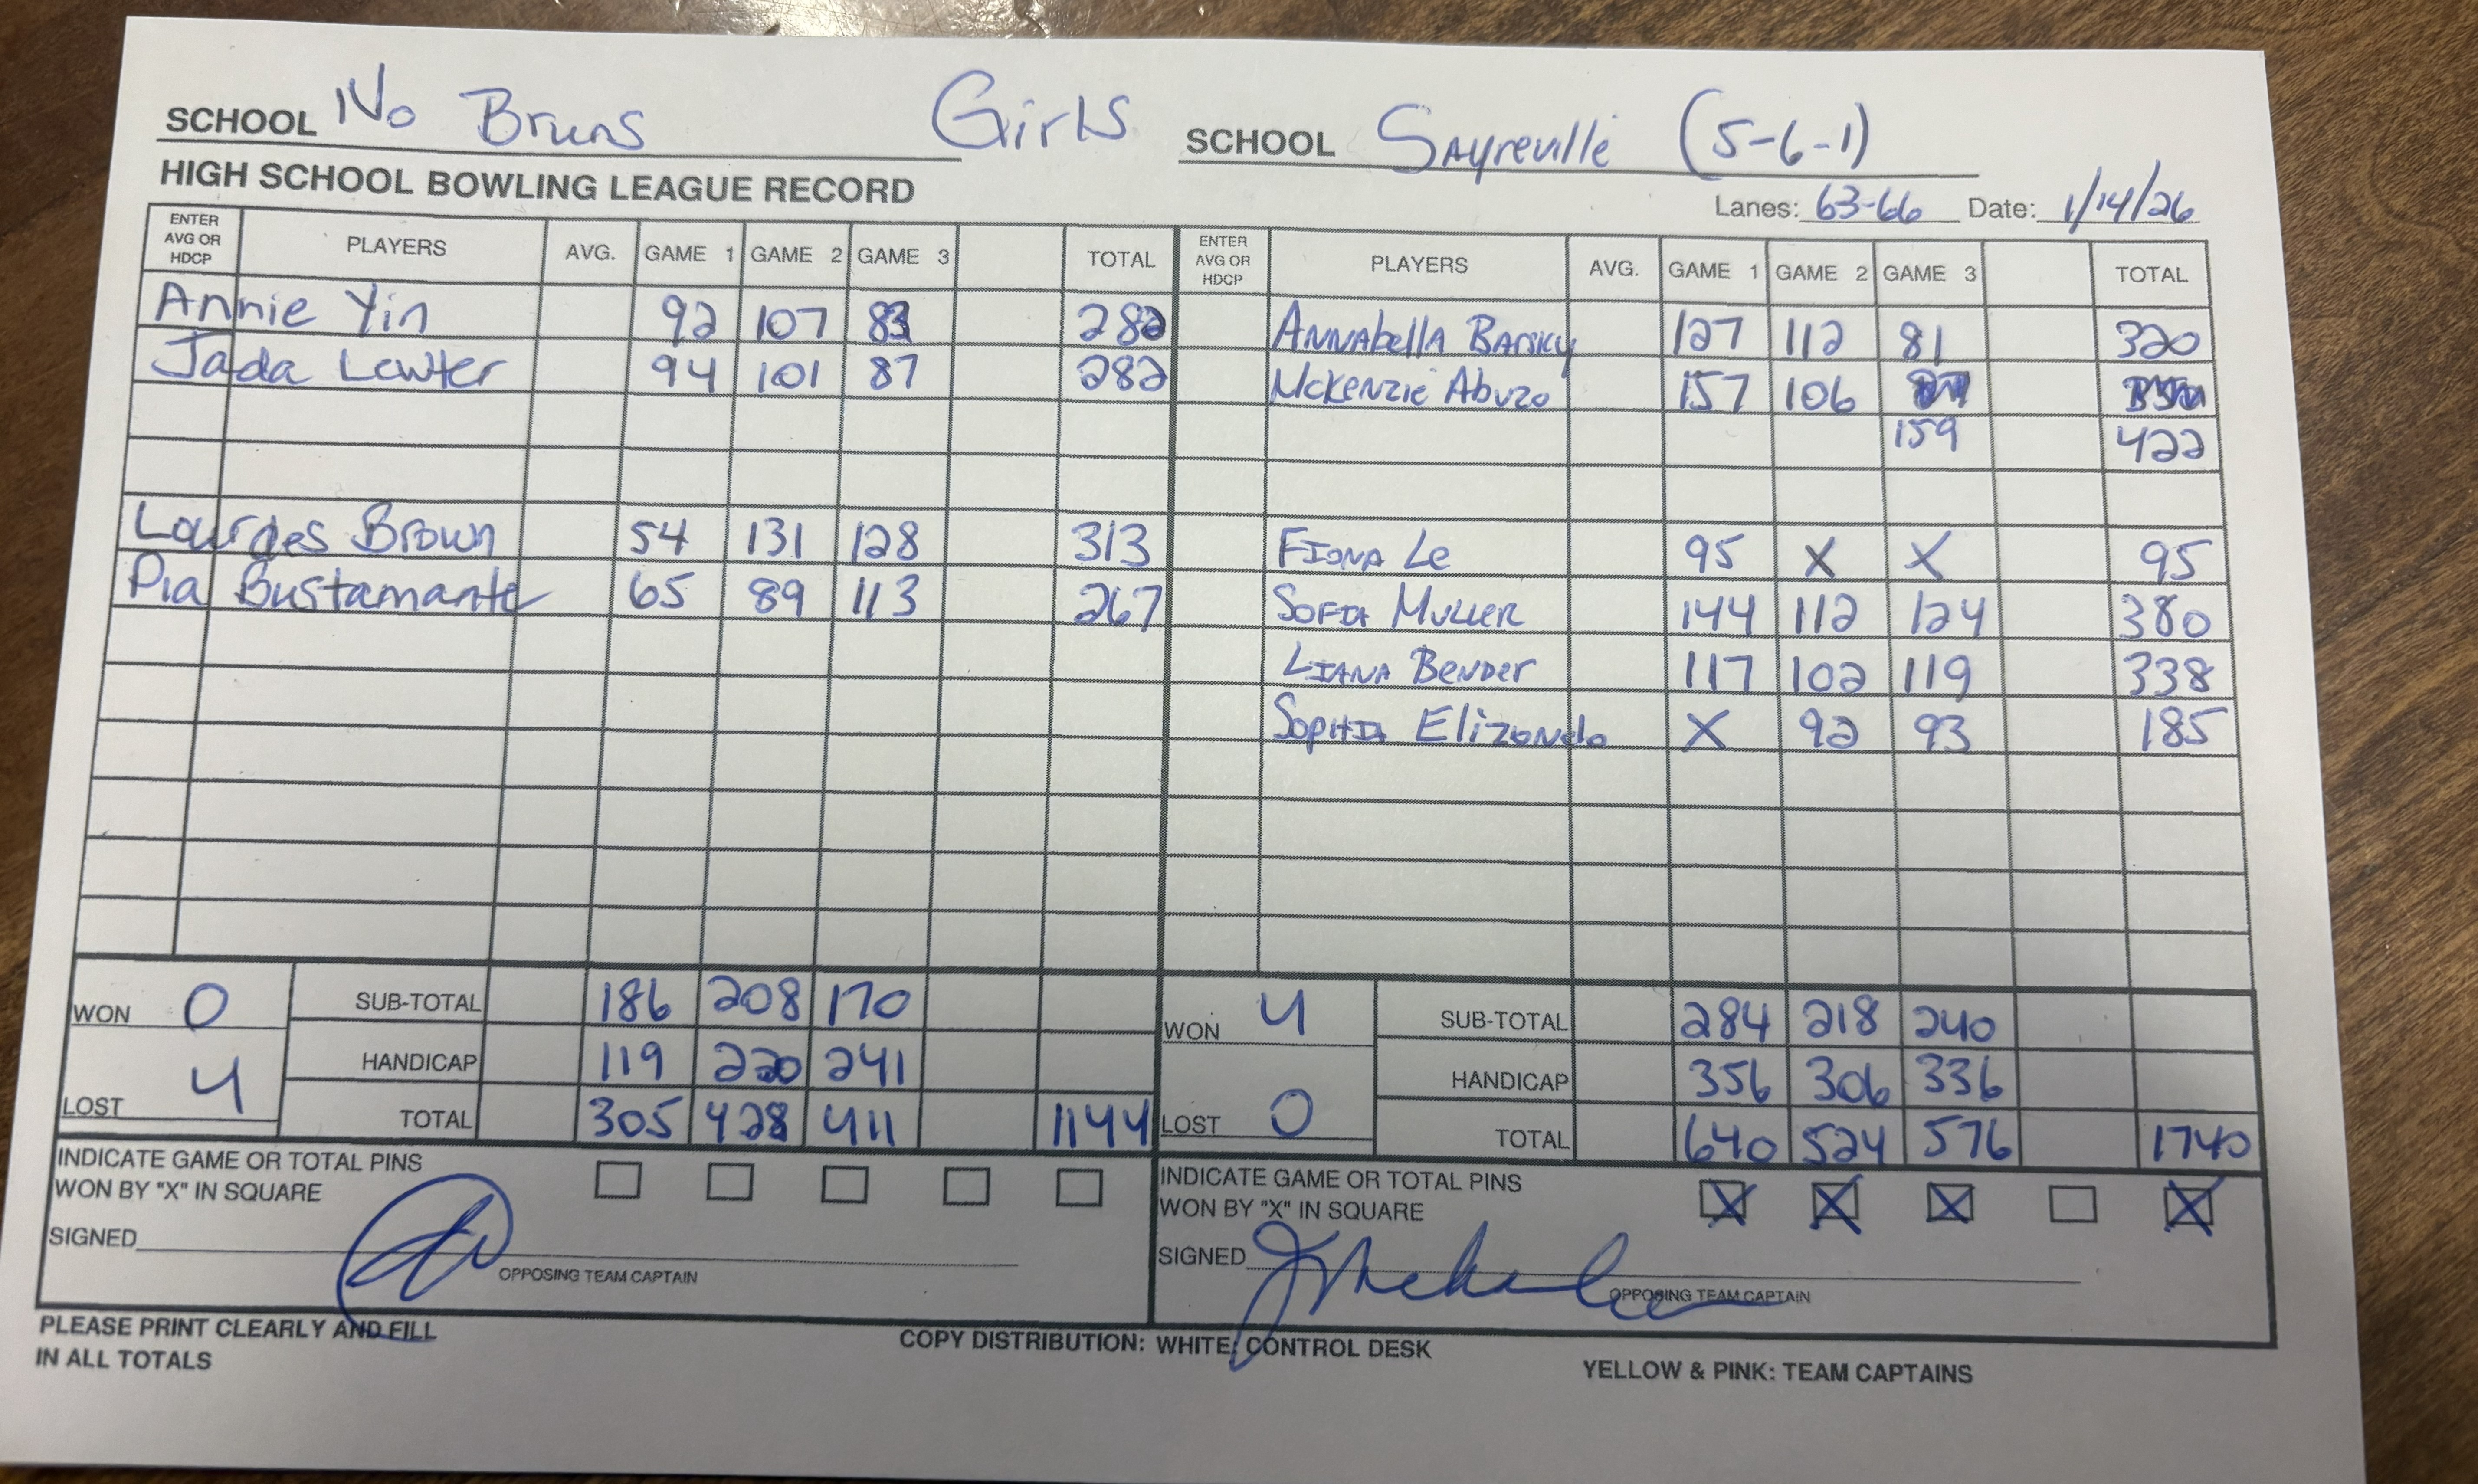 SCHOOL No Bruns Girls SCHOOL Sayreville (5-6-1)
HIGH SCHOOL BOWLING LEAGUE RECORD
Lanes: 63-66 Date: 1/14/26
ENTER AVG OR HDCP PLAYERS AVG. GAME 1 GAME 2 GAME 3 TOTAL ENTER AVG OR HDCP PLAYERS AVG. GAME 1 GAME 2 GAME 3 TOTAL
Annie Yin 92 107 83 282 Annabella Barsky 127 112 81 320
Jada Lawter 94 101 87 282 McKenzie Abuzo 157 106
159 422
Lourdes Brown 54 131 128 313 Fiona Le 95 X X 95
Pia Bustamante 65 89 113 267 Sofia Muller 144 112 124 380
Liana Bender 117 102 119 338
Sophia Elizondo X 92 93 185
WON 0 SUB-TOTAL 186 208 170 WON 4 SUB-TOTAL 284 218 240
HANDICAP 119 220 241 HANDICAP 356 306 336
LOST 4 TOTAL 305 428 411 1144 LOST 0 TOTAL 640 524 576 1740
INDICATE GAME OR TOTAL PINS WON BY "X" IN SQUARE INDICATE GAME OR TOTAL PINS WON BY "X" IN SQUARE X X X X
SIGNED OPPOSING TEAM CAPTAIN SIGNED OPPOSING TEAM CAPTAIN
PLEASE PRINT CLEARLY AND FILL IN ALL TOTALS
COPY DISTRIBUTION: WHITE: CONTROL DESK
YELLOW & PINK: TEAM CAPTAINS